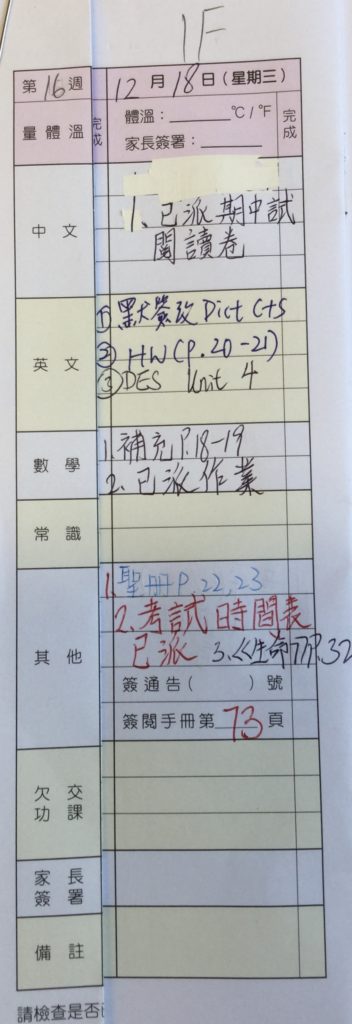 1F
第16週 完成 12月18日(星期三)
量體溫 體溫：______°C/°F 完成
家長簽署：______
中文
1、已派期中試
閱讀卷
英文
① 默簽改 Dict C+S
② HW (P.20-21)
③ DES Unit 4
數學
1.補充P.18-19
2.已派作業
常識
其他
1.聖冊P.22,23
2.考試時間表
已派 3.《生命 P.32
簽通告( )號
簽閱手冊第73頁
欠交
功課
家長
簽署
備註
請檢查是否